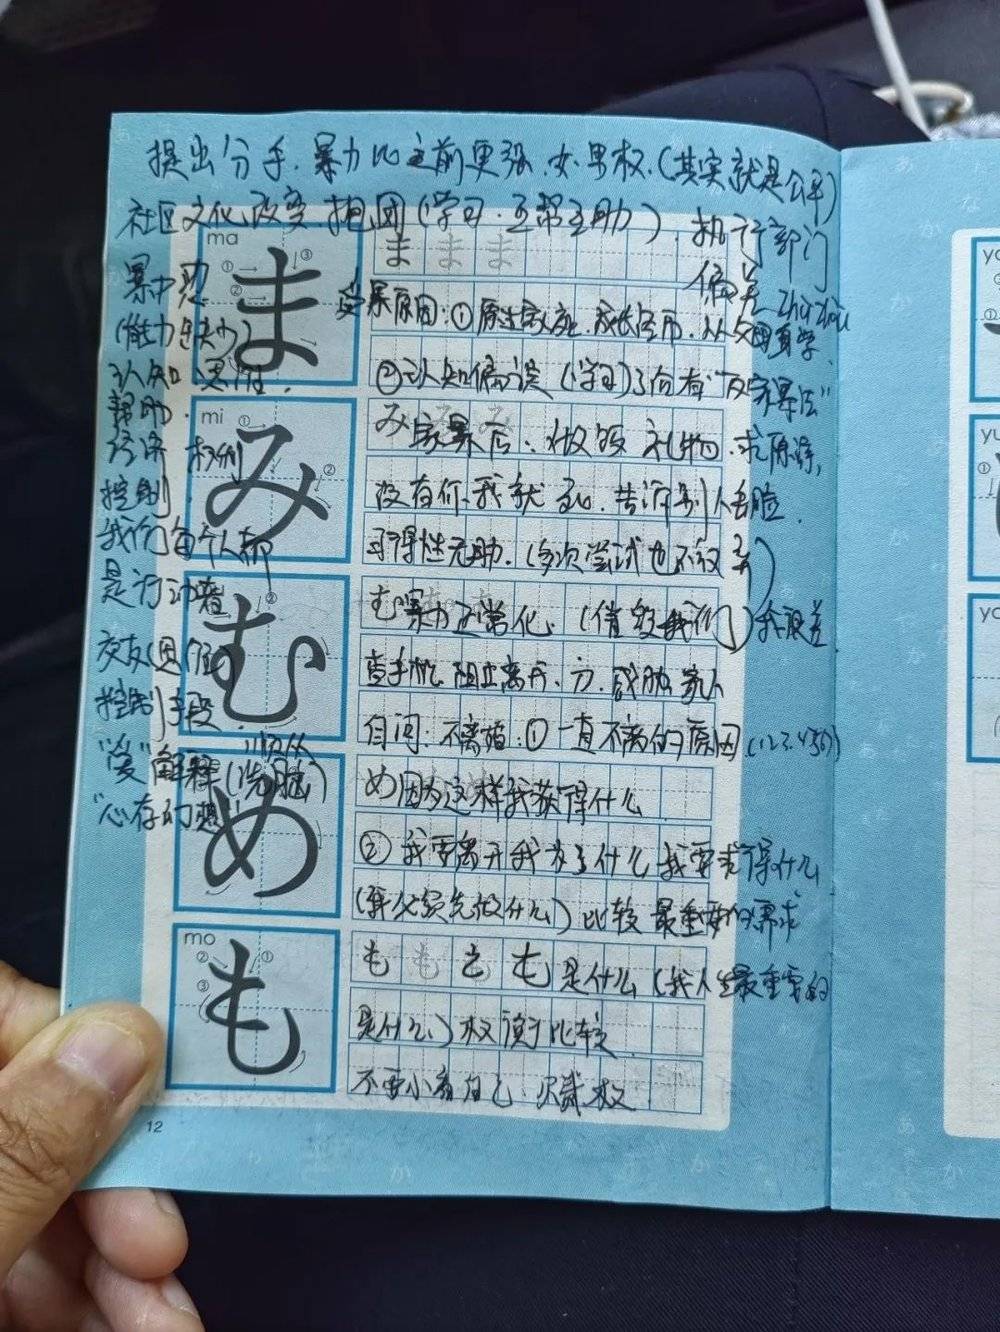 提出分手.暴力比之前更强.女男权.(其实就是公平)
社区文化改变.抱团(学习.互帮互助).执行部门
偏差
ma
ま ま ま ま
① ② ③
暴力
(能力缺少)
认知思维.
帮助.
权利
控制
我们每个人都
是行动者
交友
控制手段.
"爱"解释(洗脑)
"心存幻想"
受暴原因:①原生家庭.成长
②认知偏误(学习)了向有"反家暴法"
mi
① ②
み み み み
家暴后.做饭 礼物.求原谅,
没有你我就死.告诉别人丢脸.
习得性无助.(多次尝试也不
② む む
暴力正常化.(信 我们)我很差
查手机 阻止离开、方.威胁家人
自问:不离婚:①一直不离的原因(1234567)
め め
因为这样我获得什么
②我要离开我为了什么我要求得什么
先做什么)比较 最重要的需求
mo
① ② ③
も も も も も
是什么(我人生最重要的
是什么)权衡比较.
不要小看自己.
12
ya
①
yu
①
yo